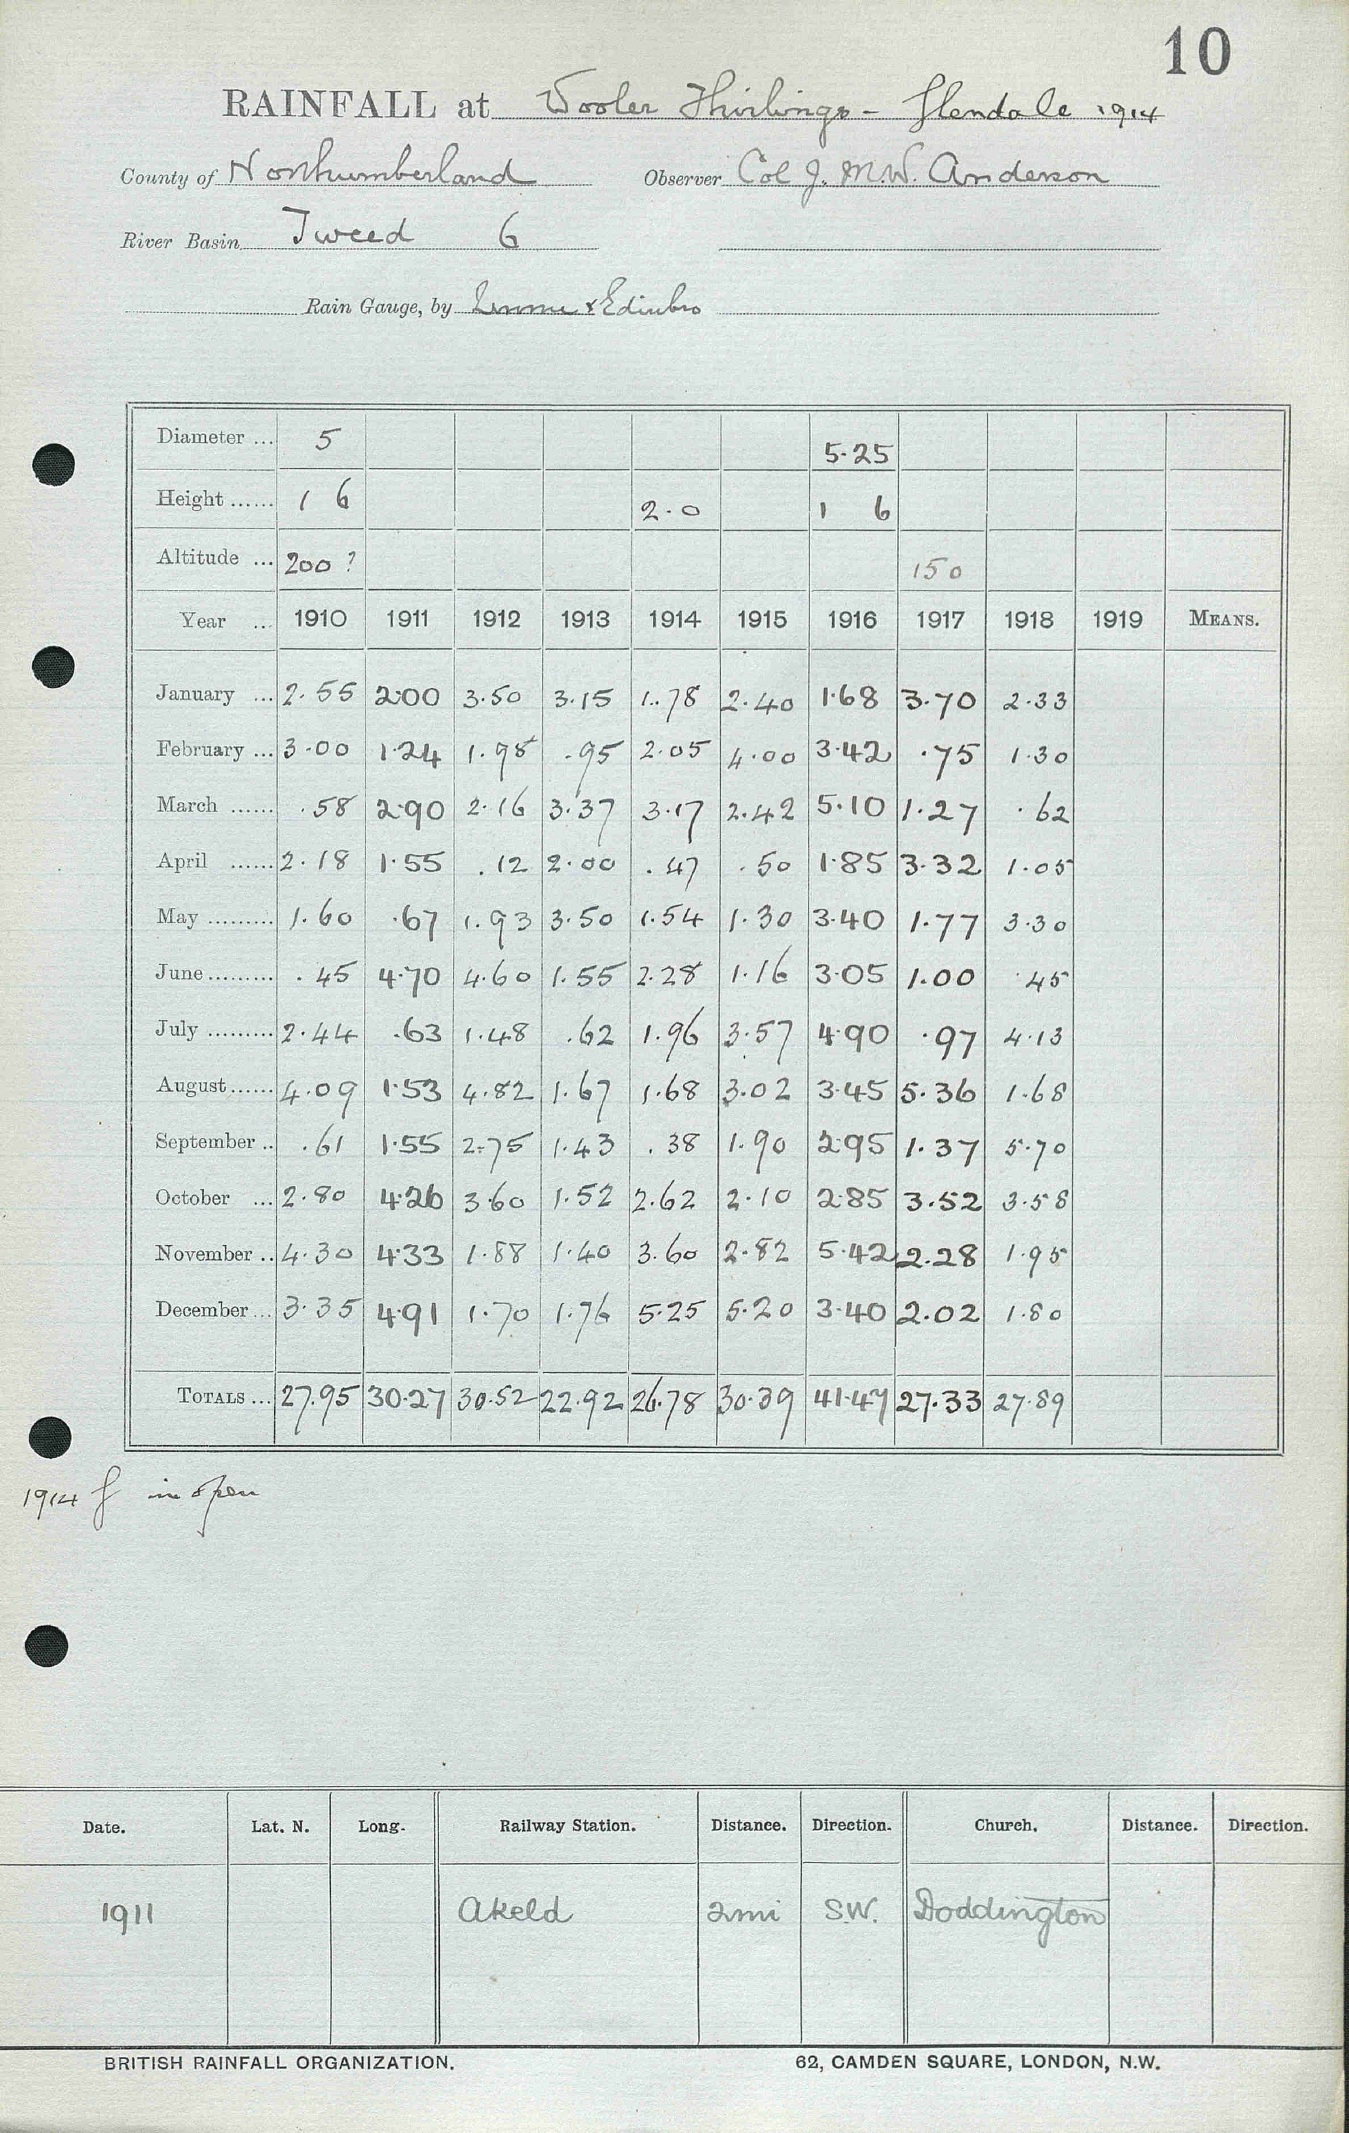 10
RAINFALL at Wooler Thirlings - Glendale 1914
County of Northumberland Observer Col J. M.W. Anderson
River Basin Tweed 6
Rain Gauge, by & Edinbro
Diameter ... 5 5.25
Height ...... 1 6 2.0 1 6
Altitude ... 200 ? 150
Year ... 1910 1911 1912 1913 1914 1915 1916 1917 1918 1919 MEANS.
January ... 2.55 2.00 3.50 3.15 1.78 2.40 1.68 3.70 2.33
February ... 3.00 1.24 1.98 .95 2.05 4.00 3.42 .75 1.30
March ...... .58 2.90 2.16 3.37 3.17 2.42 5.10 1.27 .62
April ...... 2.18 1.55 .12 2.00 .47 .50 1.85 3.32 1.05
May ......... 1.60 .67 1.93 3.50 1.54 1.30 3.40 1.77 3.30
June ......... .45 4.70 4.60 1.55 2.28 1.16 3.05 1.00 .45
July ......... 2.44 .63 1.48 .62 1.96 3.57 4.90 .97 4.13
August ...... 4.09 1.53 4.82 1.67 1.68 3.02 3.45 5.36 1.68
September .. .61 1.55 2.75 1.43 .38 1.90 2.95 1.37 5.70
October ... 2.80 4.26 3.60 1.52 2.62 2.10 2.85 3.52 3.58
November .. 4.30 4.33 1.88 1.40 3.60 2.82 5.42 2.28 1.95
December ... 3.35 4.91 1.70 1.76 5.25 5.20 3.40 2.02 1.80
TOTALS ... 27.95 30.27 30.52 22.92 26.78 30.39 41.47 27.33 27.89
1914 f in open
Date. Lat. N. Long. Railway Station. Distance. Direction. Church. Distance. Direction.
1911 Akeld 2mi S.W. Doddington
BRITISH RAINFALL ORGANIZATION. 62, CAMDEN SQUARE, LONDON, N.W.